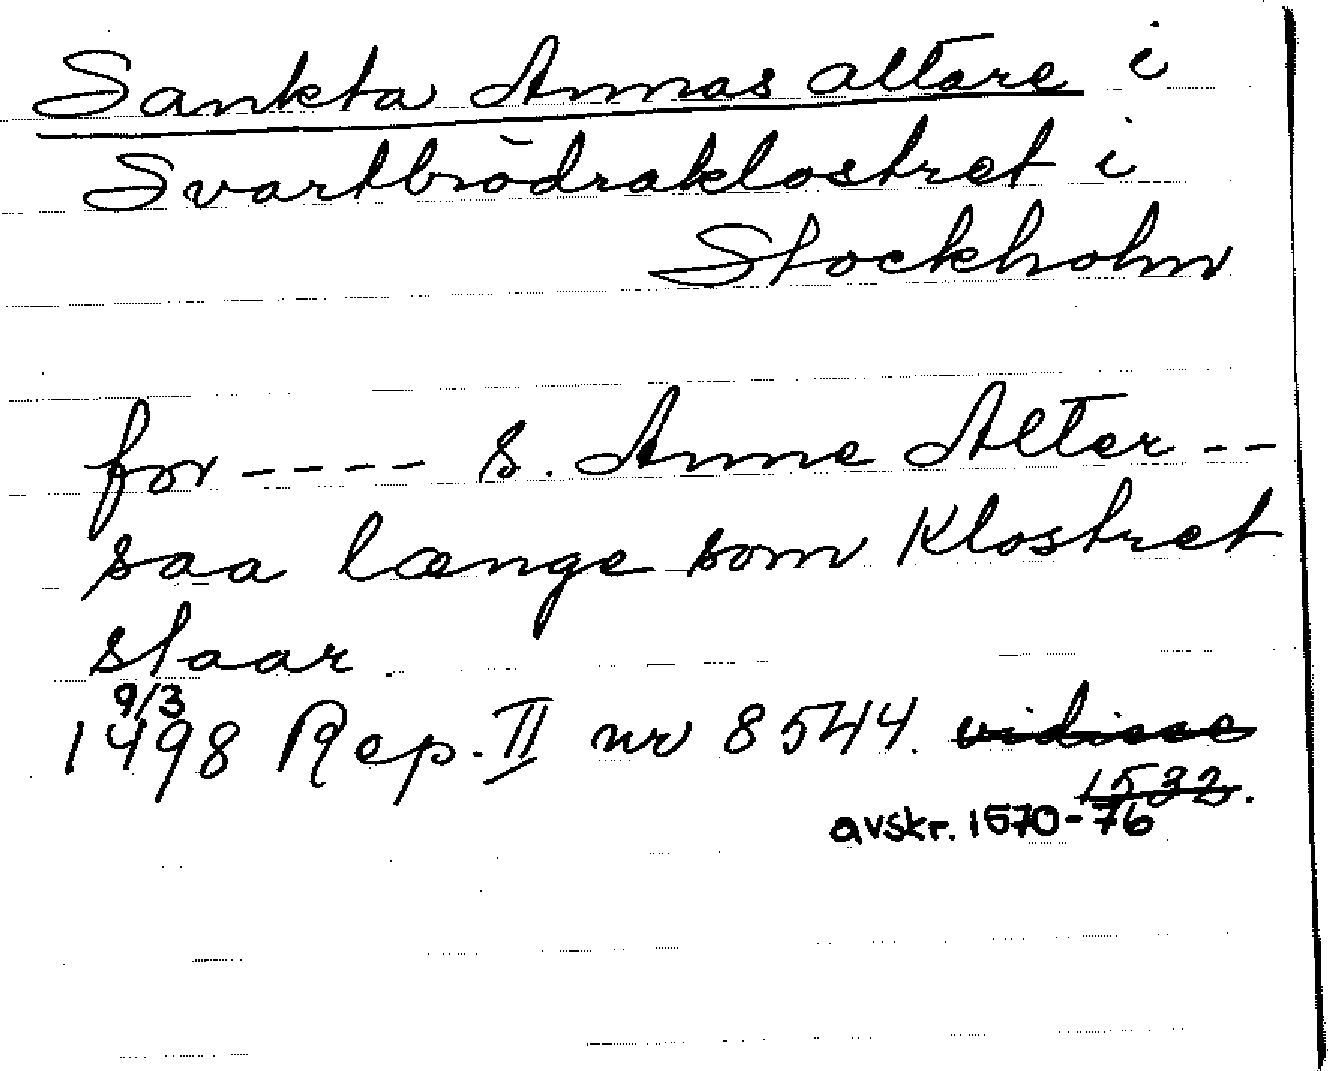 Sankta Annas altare i
Svartbrödraklostret i
Stockholm
for ---- S. Anne Alter --
saa længe som Klostret
staar
9/3
1498 Rep. II nr 8544. vidisse
1532.
avskr. 1570-76